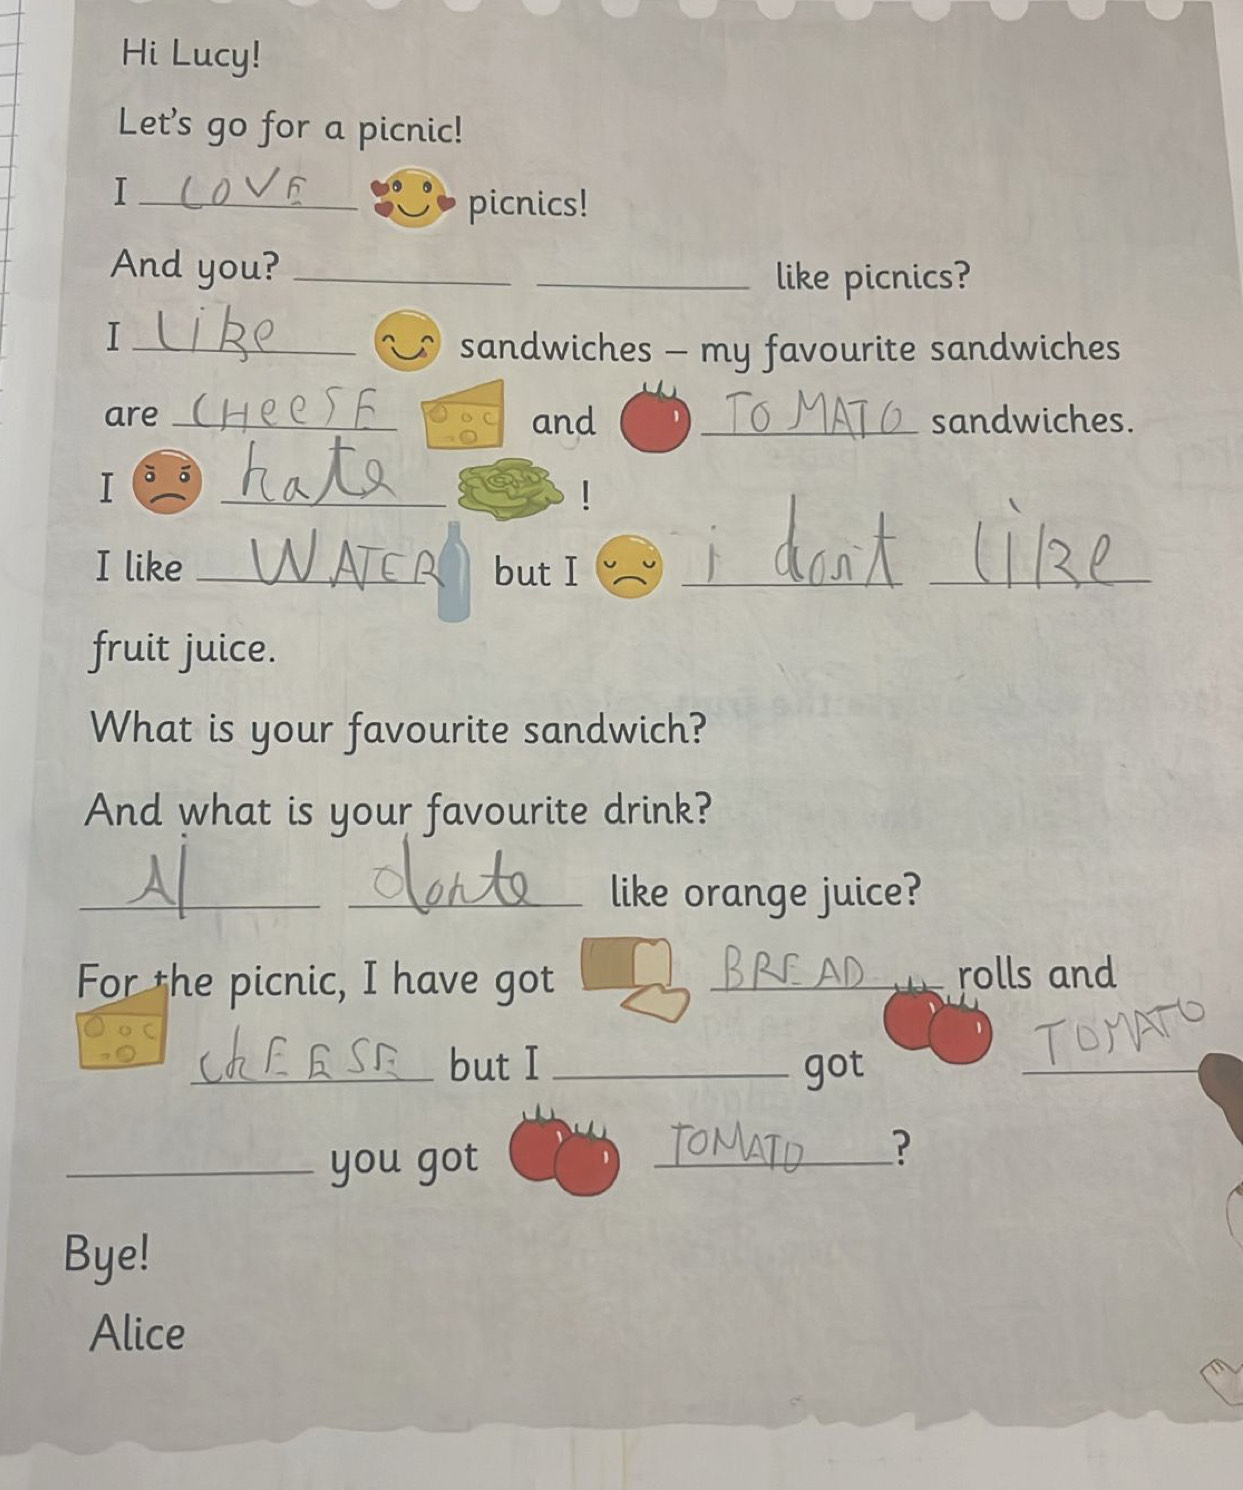 Hi Lucy!
Let's go for a picnic!
I LOVE picnics!
And you? ______ ______ like picnics?
I like sandwiches – my favourite sandwiches
are CHeeSE and TOMATO sandwiches.
I hate !
I like WATER but I i dont like
fruit juice.
What is your favourite sandwich?
And what is your favourite drink?
donte like orange juice?
For the picnic, I have got BREAD rolls and
chEESE but I ______ got TOMATO
______ you got TOMATO ?
Bye!
Alice